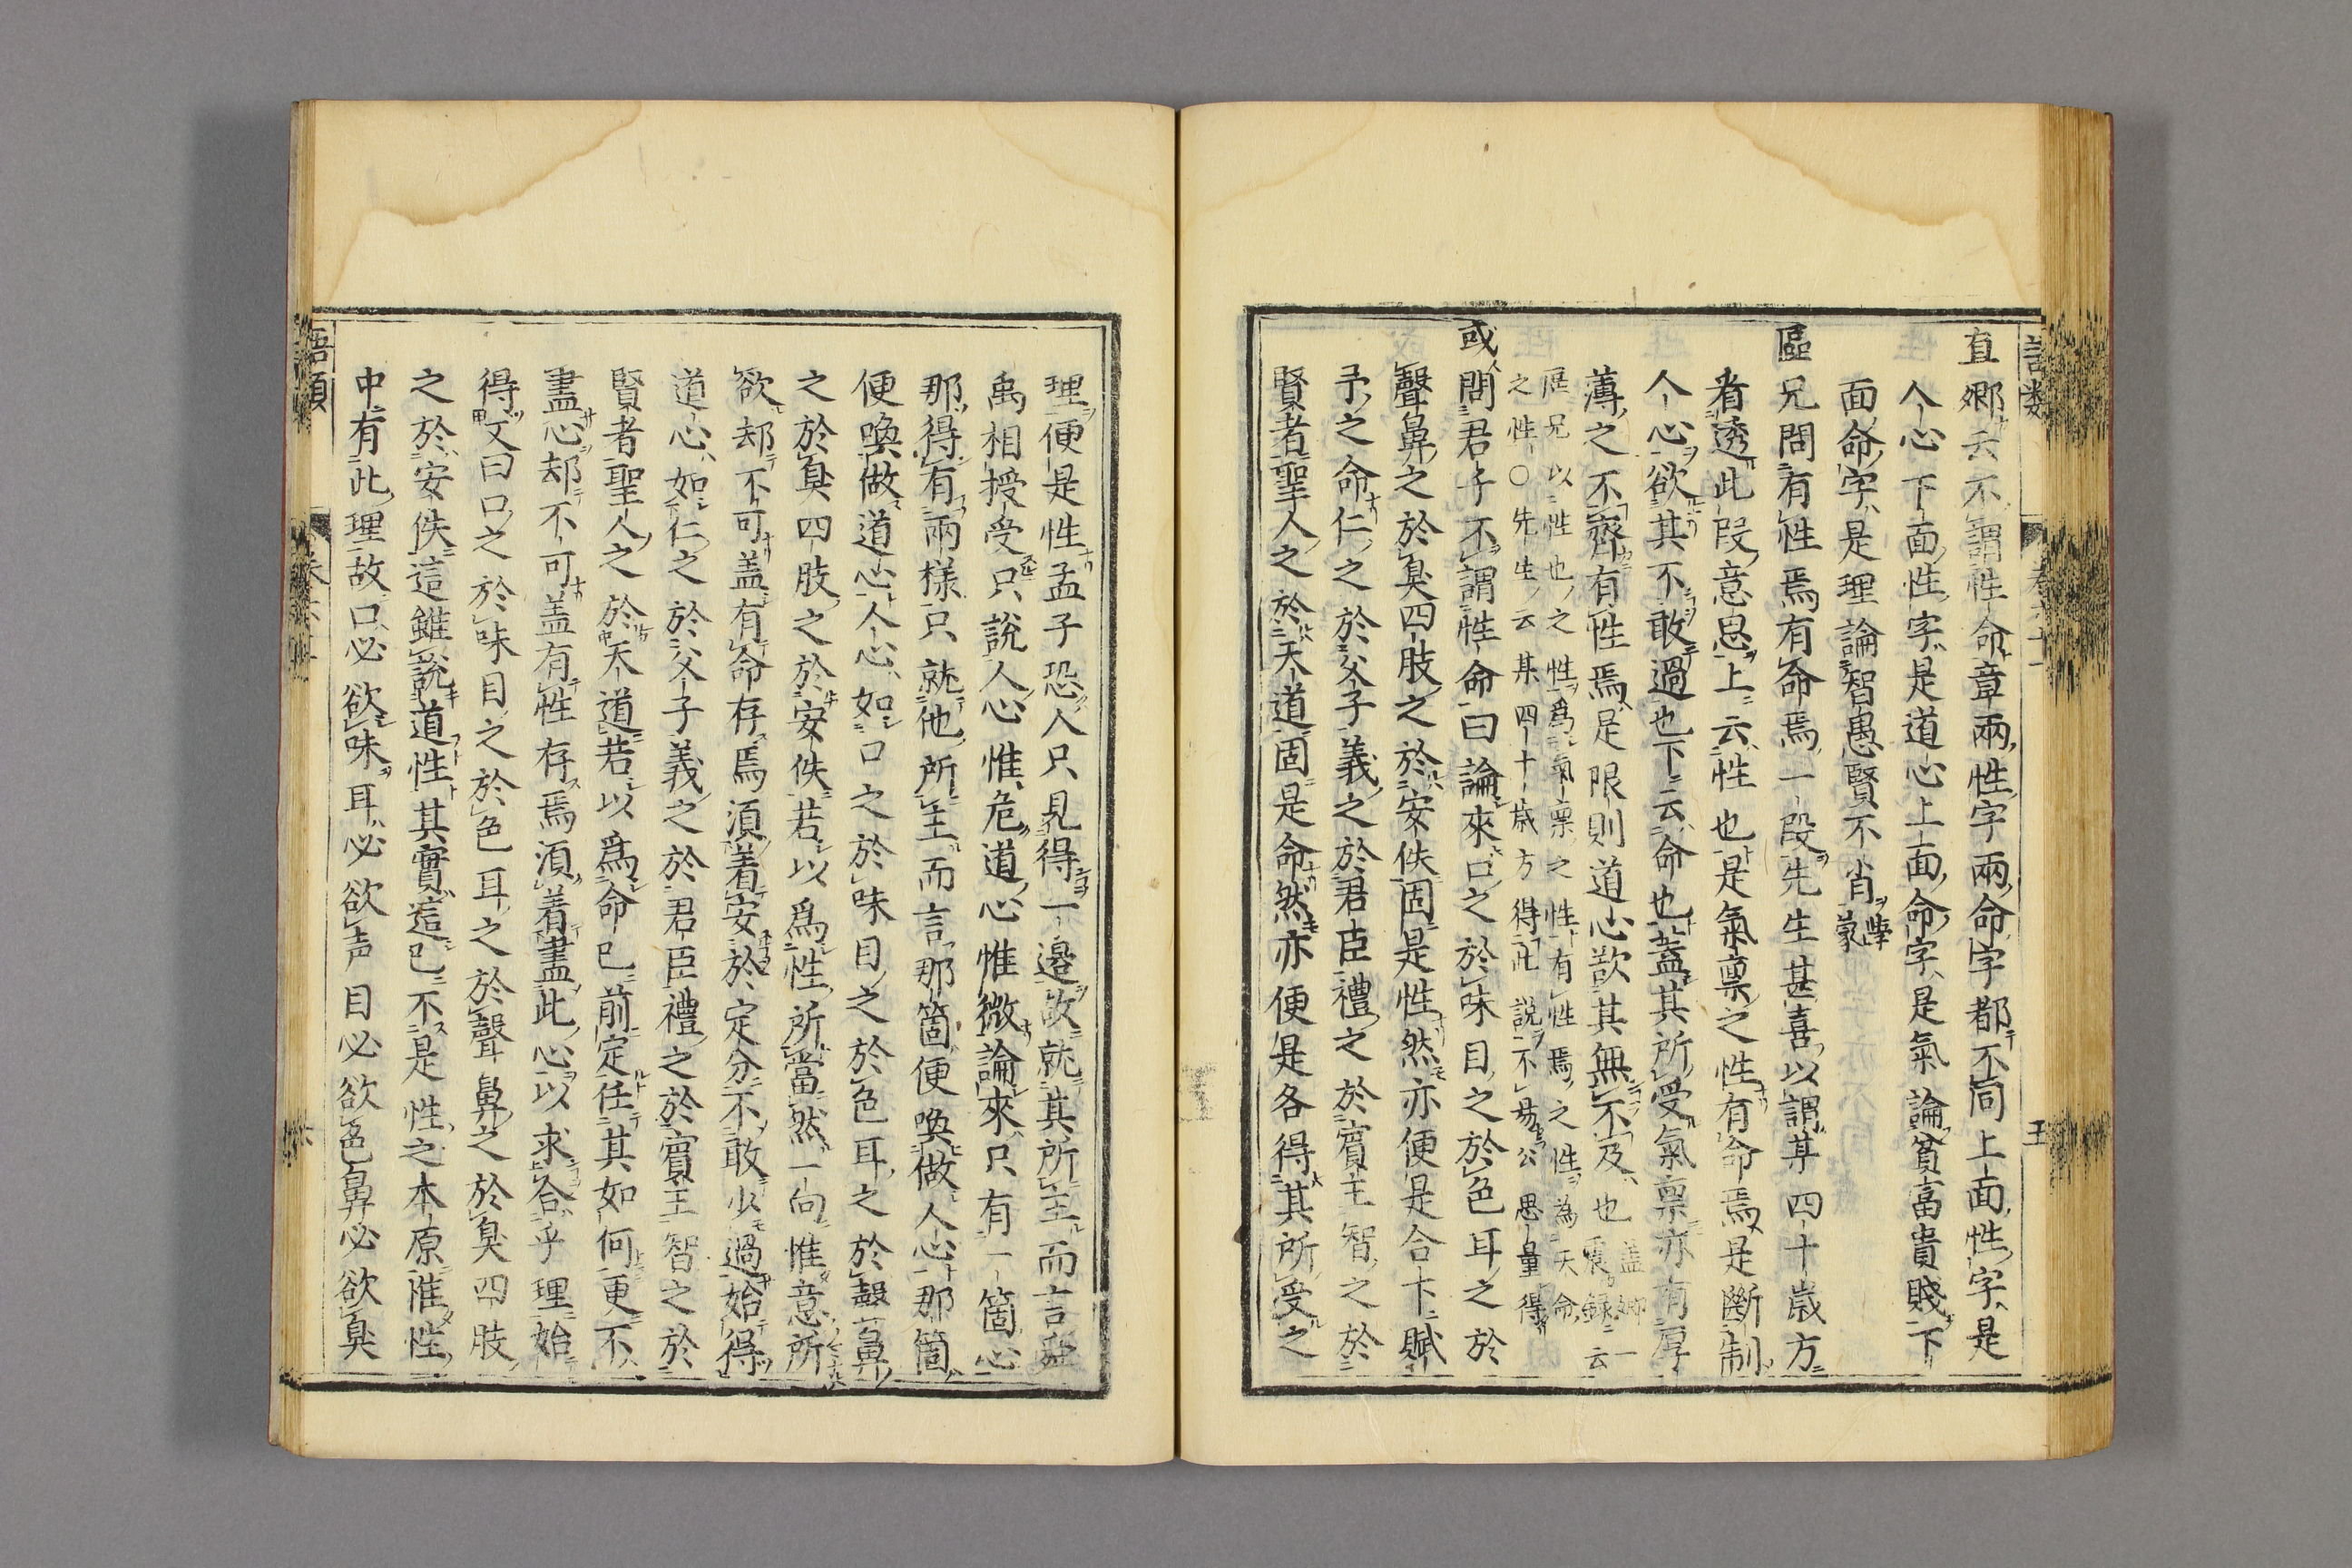 直卿云不謂性命章兩性字兩命字都不同上面性字是
人心下面性字是道心上面命字是氣論貧富貴賤下
面命字是理論智愚賢不肖學蒙
區兄問有性焉有命焉一段先生甚喜以謂某四十歲方
看透此段意思上云性也是氣稟之性有命焉是斷制
人心欲其不敢過也下云命也蓋其所受氣稟亦有厚
薄之不齊有性焉是限則道心欲其無不及也蓋卿一震錄云
區兄以性也之性爲氣稟之性有性焉之性為天命
之性〇先生云某四十歲方得此說不易公思量得
或問君子不謂性命曰論來口之於味目之於色耳之於
聲鼻之於臭四肢之於安佚固是性然亦便是合下賦
予之命仁之於父子義之於君臣禮之於賓主智之於
賢者聖人之於天道固是命然亦便是各得其所受之
理便是性孟子恐人只見得一邊故就其所主而言舜
禹相授受只說人心惟危道心惟微論來只有一箇心
那得有兩樣只就他所主而言那箇便喚做人心那箇
便喚做道心人心如口之於味目之於色耳之於聲鼻
之於臭四肢之於安佚若以爲性所當然一向惟意所
欲却不可盖有命存焉須着安於定分不敢少過始得
道心如仁之於父子義之於君臣禮之於賓主智之於
賢者聖人之於天道若以爲命已前定任其如何更不
盡心却不可盖有性存焉須着盡此心以求合乎理始
得又曰口之於味目之於色耳之於聲鼻之於臭四肢
之於安佚這雖說道性其實這已不是性之本原惟性
中有此理故口必欲味耳必欲声目必欲色鼻必欲臭